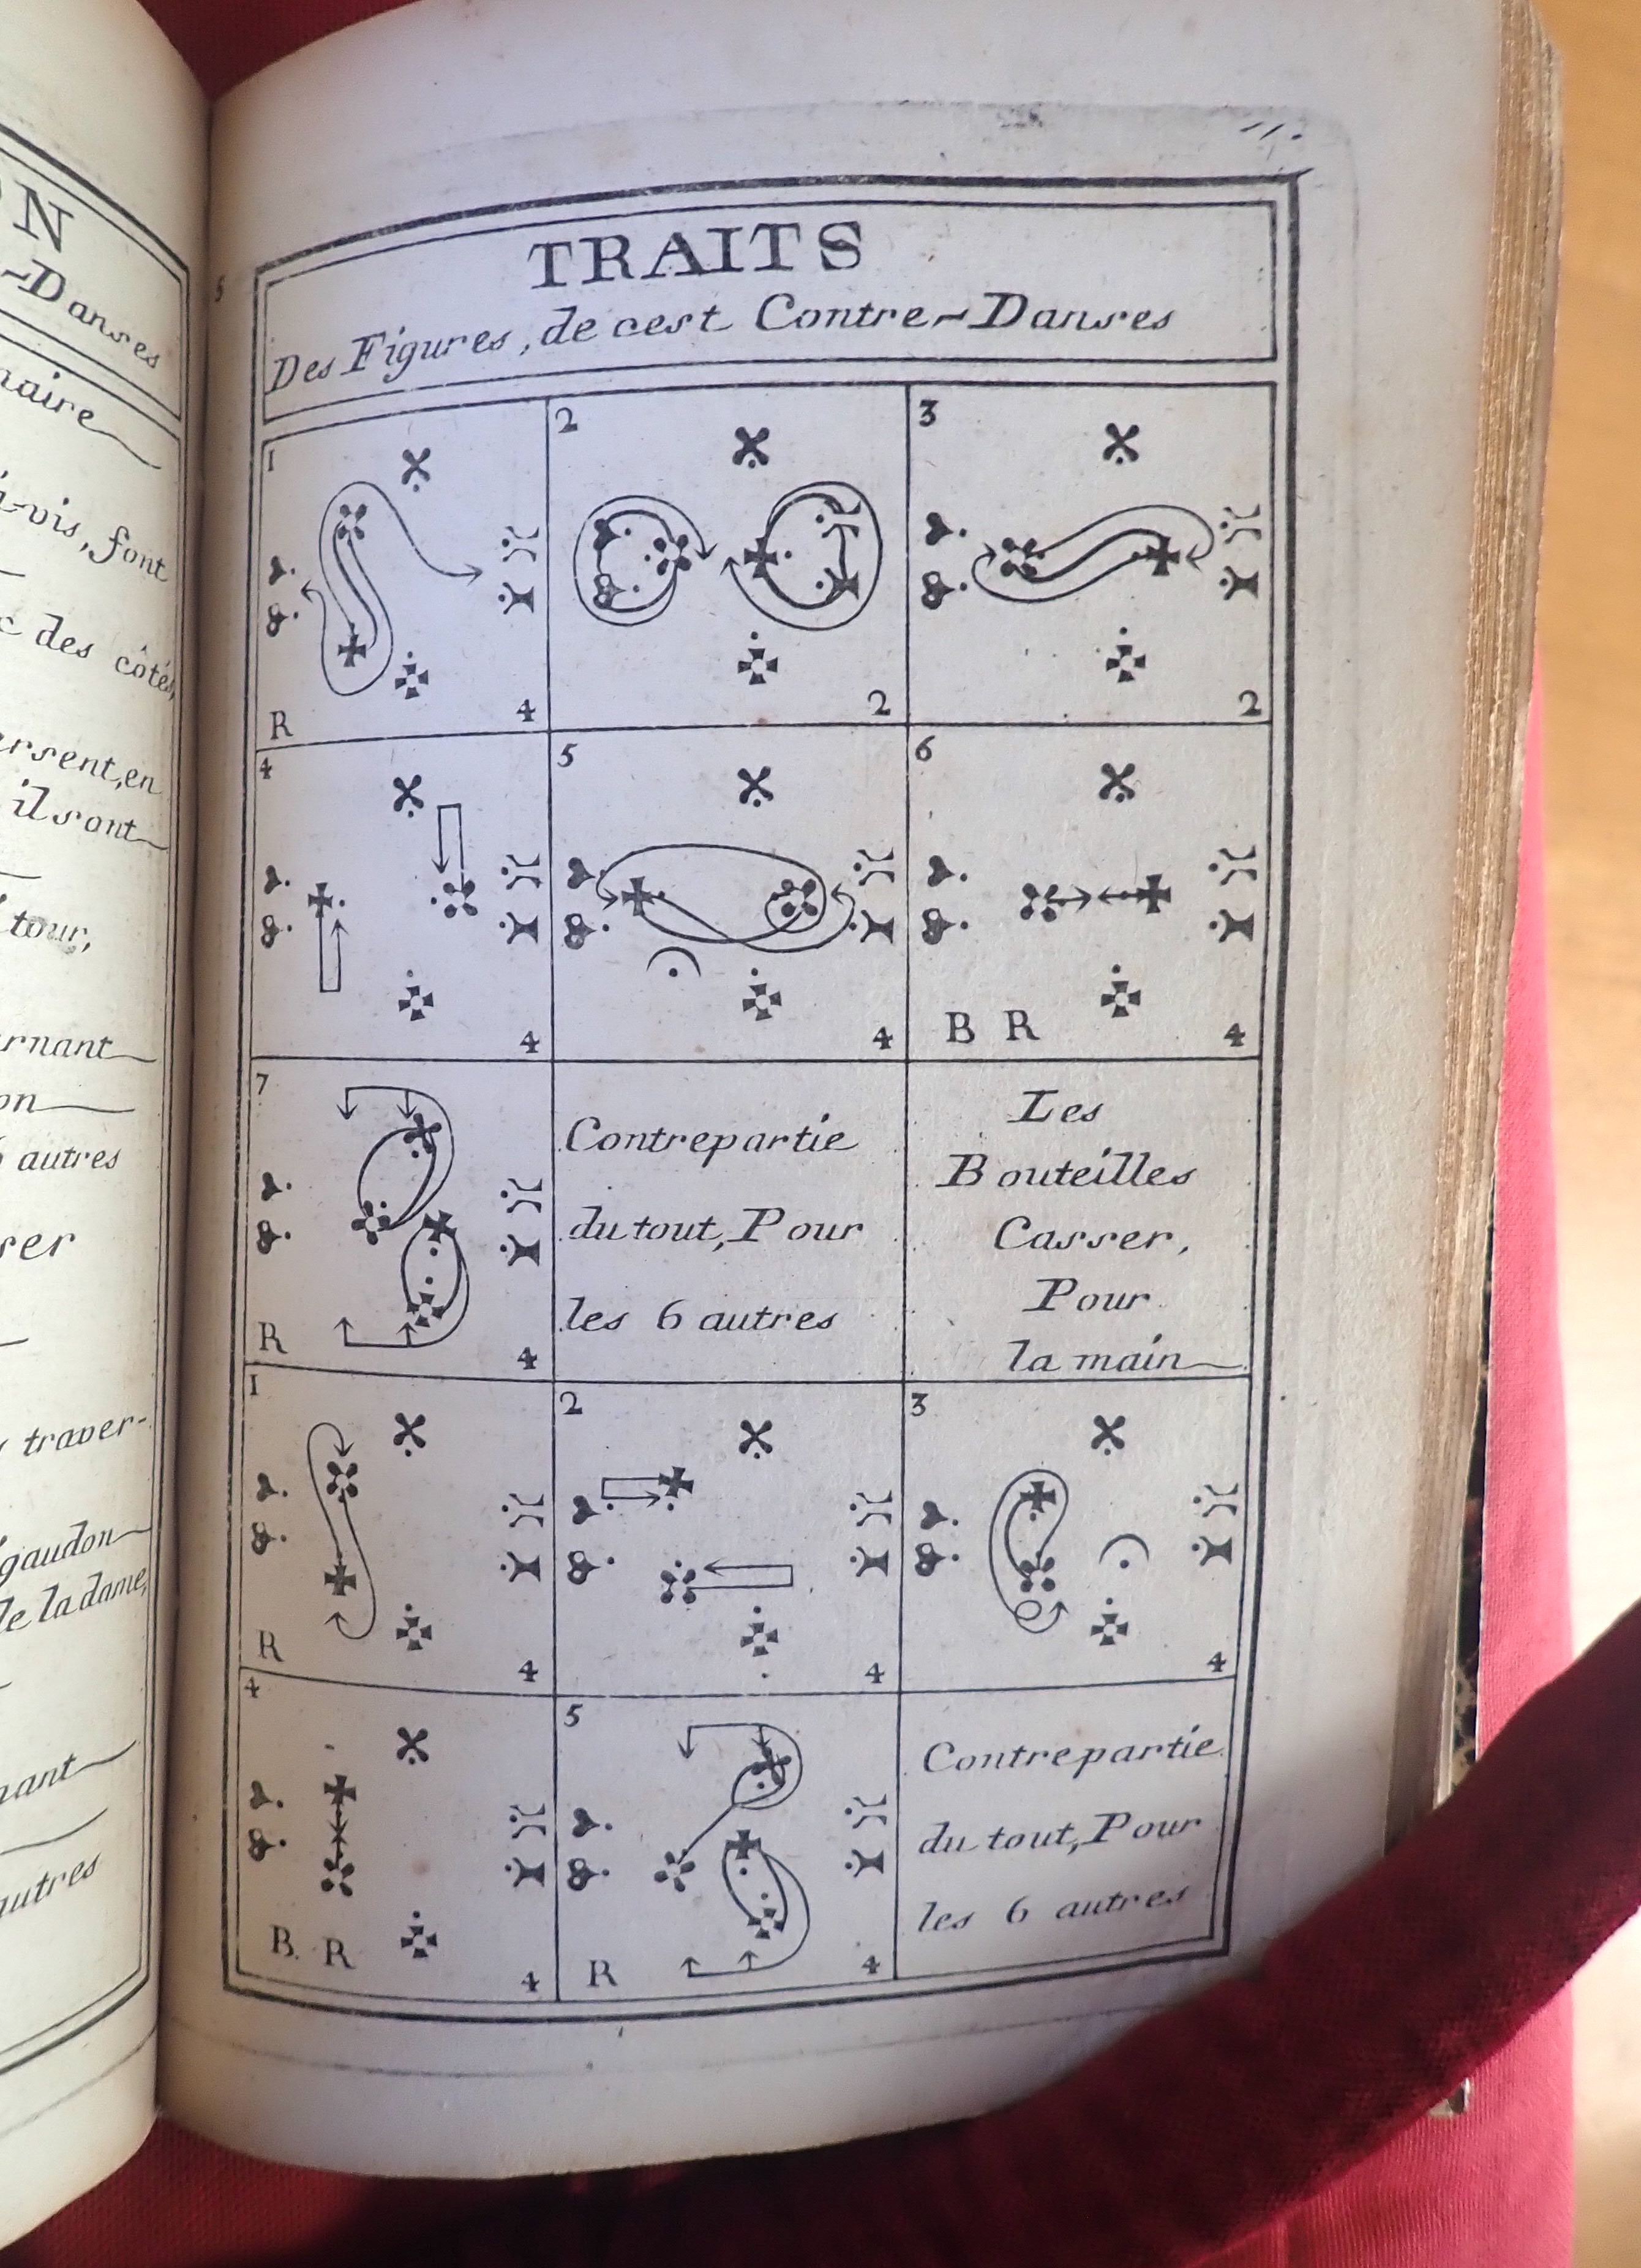 N
-Danses
naire
-vis, font
des côtés,
ersent, en
il sont
tour,
rnant
on
autres
ser
traver-
gaudon
le la dame,
nant
autres
11.
5
TRAITS
Des Figures, de cest Contre-Danses
1
R 4
2
2
3
2
4
4
5
4
6
B R 4
7
R 4
Contrepartie
du tout, Pour
les 6 autres
Les
Bouteilles
Casser,
Pour
la main
1
R 4
2
4
3
4
4
B. R 4
5
R 4
Contrepartie
du tout, Pour
les 6 autres